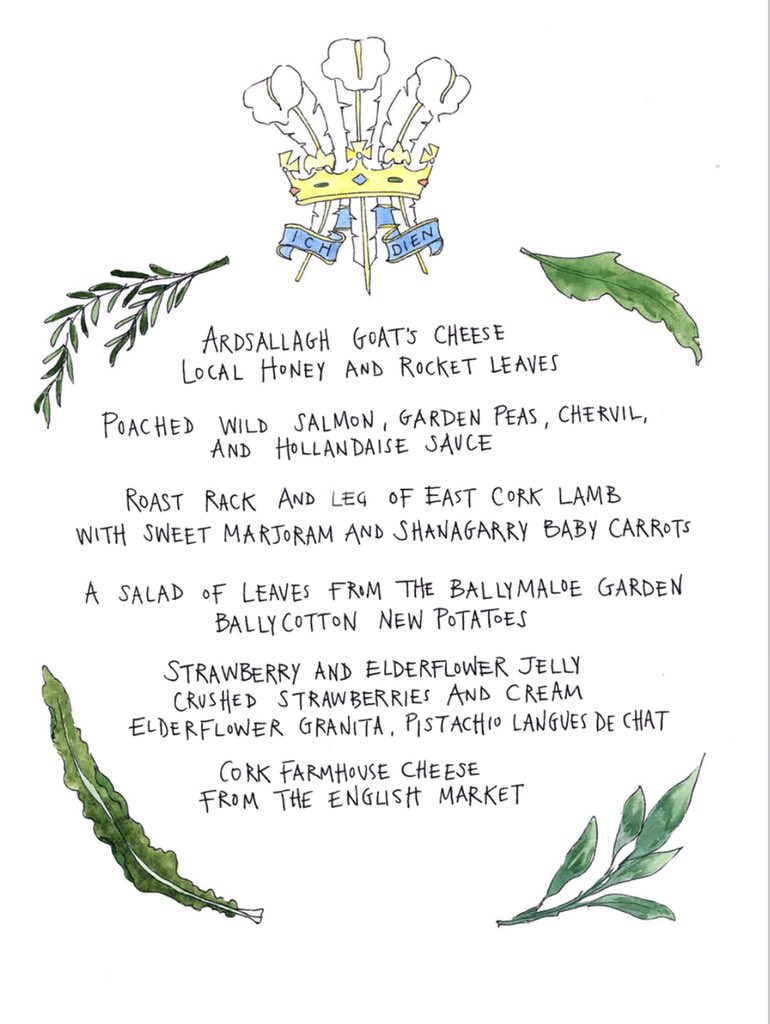 ICH DIEN
ARDSALLAGH GOAT'S CHEESE
LOCAL HONEY AND ROCKET LEAVES
POACHED WILD SALMON, GARDEN PEAS, CHERVIL,
AND HOLLANDAISE SAUCE
ROAST RACK AND LEG OF EAST CORK LAMB
WITH SWEET MARJORAM AND SHANAGARRY BABY CARROTS
A SALAD OF LEAVES FROM THE BALLYMALOE GARDEN
BALLYCOTTON NEW POTATOES
STRAWBERRY AND ELDERFLOWER JELLY
CRUSHED STRAWBERRIES AND CREAM
ELDERFLOWER GRANITA, PISTACHIO LANGUES DE CHAT
CORK FARMHOUSE CHEESE
FROM THE ENGLISH MARKET